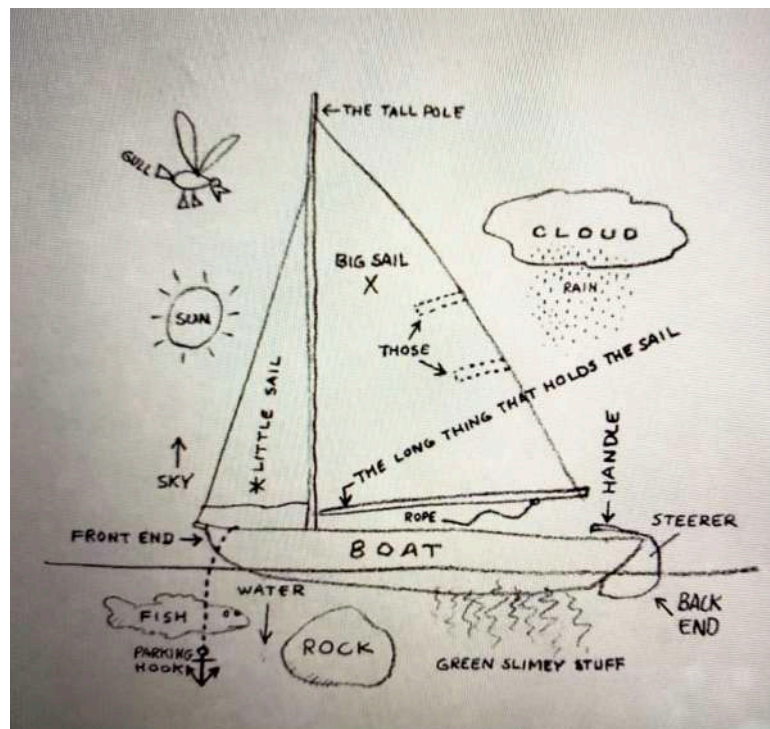 ← THE TALL POLE
GULL
CLOUD
BIG SAIL
X
RAIN
SUN
THOSE
THE LONG THING THAT HOLDS THE SAIL
* LITTLE SAIL
SKY
HANDLE
ROPE
STEERER
FRONT END →
BOAT
WATER
FISH
BACK
END
ROCK
PARKING
HOOK
GREEN SLIMEY STUFF